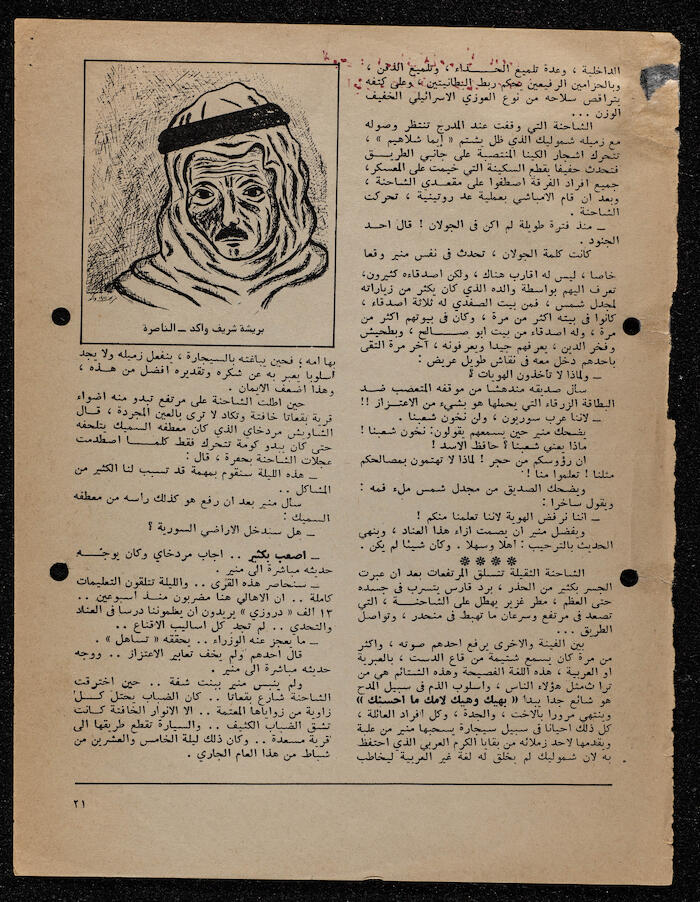 الداخلية ، وعدة تلميع الحـــذاء ، وتلميع الذقن ،
وبالحزامين الرفيعين بحكم ربط البطانيتين ، وعلى كتفه
يتراقص سلاحه من نوع العوزي الاسرائيلي الخفيف
الوزن ...
الشاحنة التي وقفت عند المدرج تنتظر وصوله
مع زميله شموليك الذي ظل يشتم « إيما شلاهيم » ،
تتحرك اشجار الكينا المنتصبة على جانبي الطريــق
فتحدث حفيفا يقطع السكينة التي خيمت على المعسكر،
جميع افراد الفرقة اصطفوا على مقعدي الشاحنة ،
وبعد ان قام الامباشي بعملية عد روتينية ، تحركت
الشاحنة .
ــ منذ فترة طويلة لم اكن في الجولان ! قال احــد
الجنود .
كانت كلمة الجولان ، تحدث في نفس منير وقعا
خاصا ، ليس له اقارب هناك ، ولكن اصدقاءه كثيرون،
تعرف اليهم بواسطة والده الذي كان يكثر من زياراته
لمجدل شمس ، فمن بيت الصفدي له ثلاثة اصدقاء ،
كانوا في بيته اكثر من مرة ، وكان في بيوتهم اكثر من
مرة ، وله اصدقاء من بيت ابو صـــالح ، وبطحيش
وفخر الدين ، يعرفهم جيدا ويعرفونه ، آخر مرة التقى
باحدهم دخل معه في نقاش طويل عريض :
ــ ولماذا لا تأخذون الهويات ؟
سأل صديقه مندهشا من موقفه المتعصب ضــد
البطاقة الزرقاء التي يحملها هو بشيء من الاعتــزاز !!
ــ لاننا عرب سوريون ، ولن نخون شعبنا .
يضحك منير حين يسمعهم يقولون: نخون شعبنا !
ماذا يعني شعبنا ؟ حافظ الاسد !
ان رؤوسكم من حجر ! لماذا لا تهتمون بمصالحكم
مثلنا ! تعلموا منا !
ويضحك الصديق من مجدل شمس ملء فمه :
ويقول ساخرا :
ــ اننا نرفض الهوية لاننا تعلمنا منكم !
ويفضل منير ان يصمت ازاء هذا العناد ، وينهي
الحديث بالترحيب : اهلا وسهلا . وكأن شيئا لم يكن .
****
الشاحنة الثقيلة تتسلق المرتفعات بعد ان عبرت
الجسر بكثير من الحذر ، برد قارس يتسرب في جسده
حتى العظم ، مطر غزير يهطل على الشاحنـــة ، التي
تصعد في مرتفع وسرعان ما تهبط في منحدر ، وتواصل
الطريق ...
بين الفينة والاخرى يرفع احدهم صوته ، واكثر
من مرة كان يسمع شتيمة من قاع الدست ، بالعبرية
او العربية ، هذه اللغة الفصيحة وهذه الشتائم هي من
تراث مثل هؤلاء الناس ، واسلوب الذم في سبيل المدح
هو شائع جدا يبدأ « بهيك وهيك لامك ما احسنك »
وينتهي مرورا بالاخت ، والجدة ، وكل افراد العائلة ،
كل ذلك احيانا في سبيل سيجارة يسحبها منير من علبة
ويقدمها لاحد زملائه من بقايا الكرم العربي الذي احتفظ
به لان شموليك لم يخلق له لغة غير العربية ليخاطب
بريشة شريف واكد ــ الناصرة
بها امه ؛ فحين يباغته بالسيجارة ، ينفعل زميله ولا يجد
اسلوبا يعبر به عن شكره وتقديره افضل من هذه ،
وهذا اضعف الايمان .
حين اطلت الشاحنة على مرتفع تبدو منه اضواء
قرية بقعاثا خافتة وتكاد لا ترى بالعين المجردة ، قــال
الشاويش مردخاي الذي كان معطفه السميك يتلحفه
حتى كان يبدو كومة تتحرك فقط كلمــا اصطدمت
عجلات الشاحنة بحفرة ، قال :
ــ هذه الليلة سنقوم بمهمة قد تسبب لنا الكثير من
المشاكل ..
سأل منير بعد ان رفع هو كذلك راسه من معطفه
السميك :
ــ هل سندخل الاراضي السورية ؟
ــ اصعب بكثير .. اجاب مردخاي وكان يوجــه
حديثه مباشرة الى منير .
ــ سنحاصر هذه القرى .. والليلة تتلقون التعليمات
كاملة .. ان الاهالي هنا مضربون منــذ اسبوعين ..
١٣ الف « دروزي » يريدون ان يعلموننا درسا في العناد
والتحدي .. لم تجد كل اساليب الاقناع ..
ــ ما يعجز عنه الوزراء .. يحققه « تساهل » .
قال احدهم ولم يخف تعابير الاعتزاز .. ووجه
حديثه مباشرة الى منير .
ولم ينبس منير ببنت شفة .. حين اخترقت
الشاحنة شارع بقعاثا .. كان الضباب يحتل كــل
زاوية من زواياها المعتمة .. الا الانوار الخافتة كــانت
تشق الضباب الكثيف .. والسيارة تقطع طريقها الى
قرية مسعدة .. وكان ذلك ليلة الخامس والعشرين من
شباط من هذا العام الجاري .
٢١